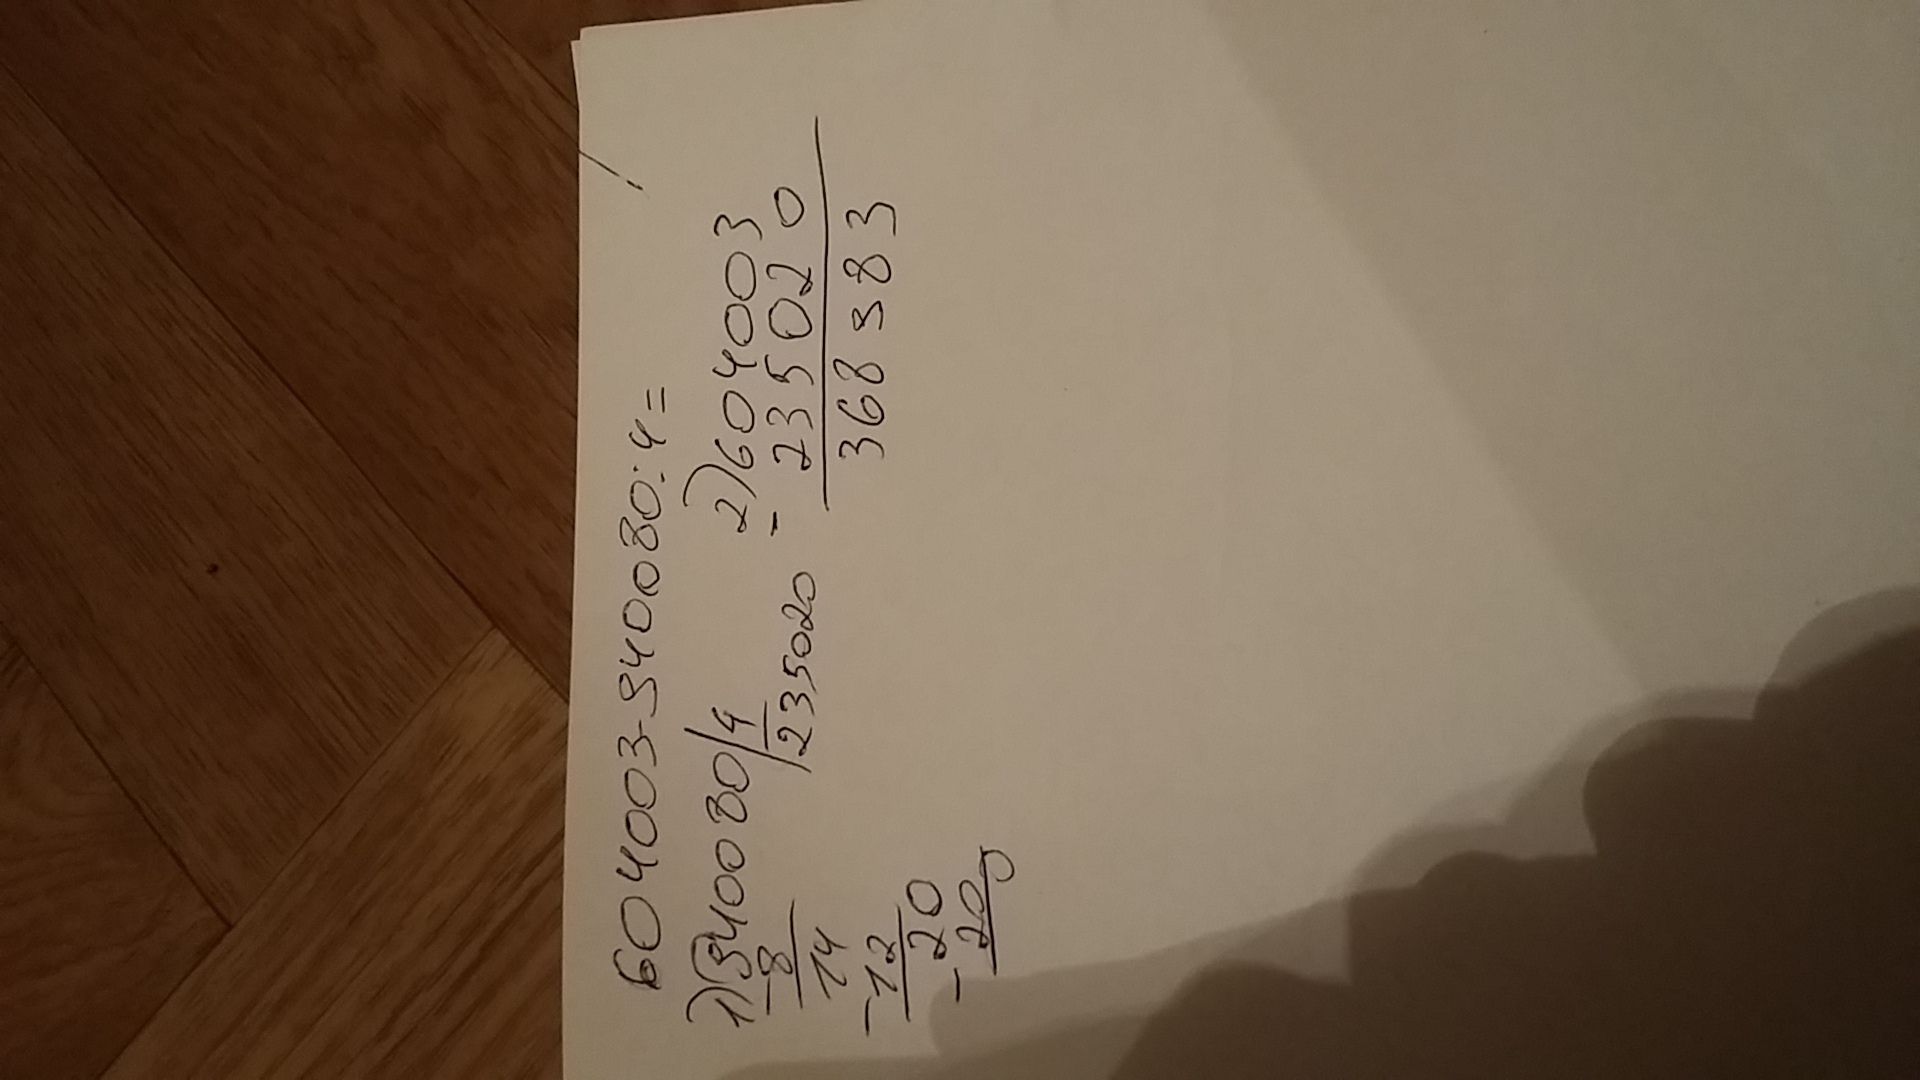 604003-940080:4=
1) 940080 | 4
235020
-8
14
-12
20
-20
0
2) 604003
- 235020
368383